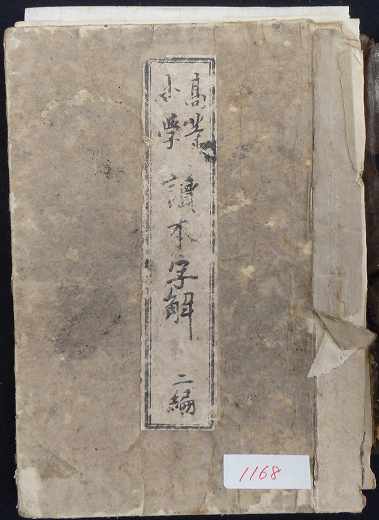 高等
小学
讀本字解
二編
1168